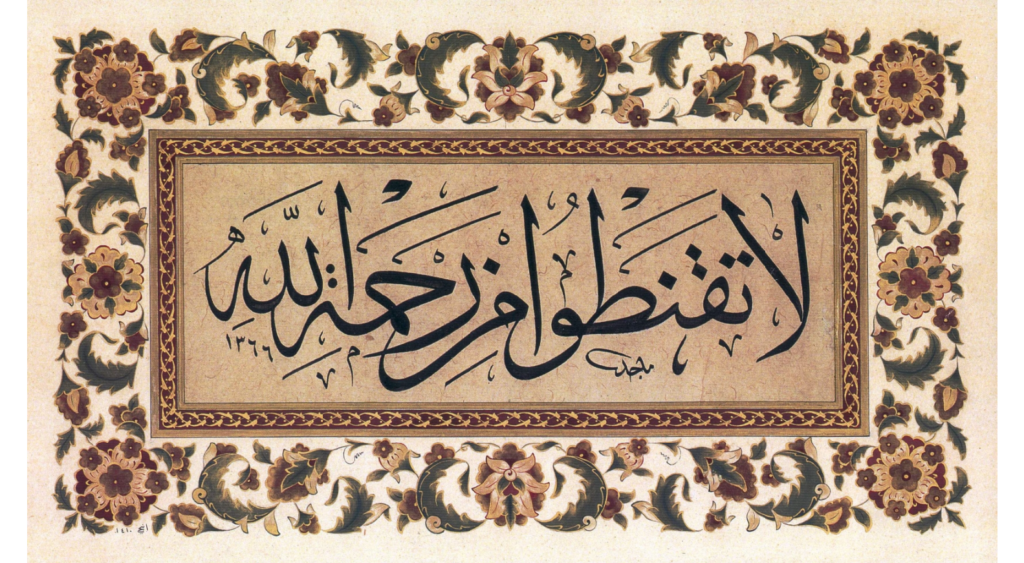 لا تقنطوا من رحمة الله
ماجد
١٣٦٦